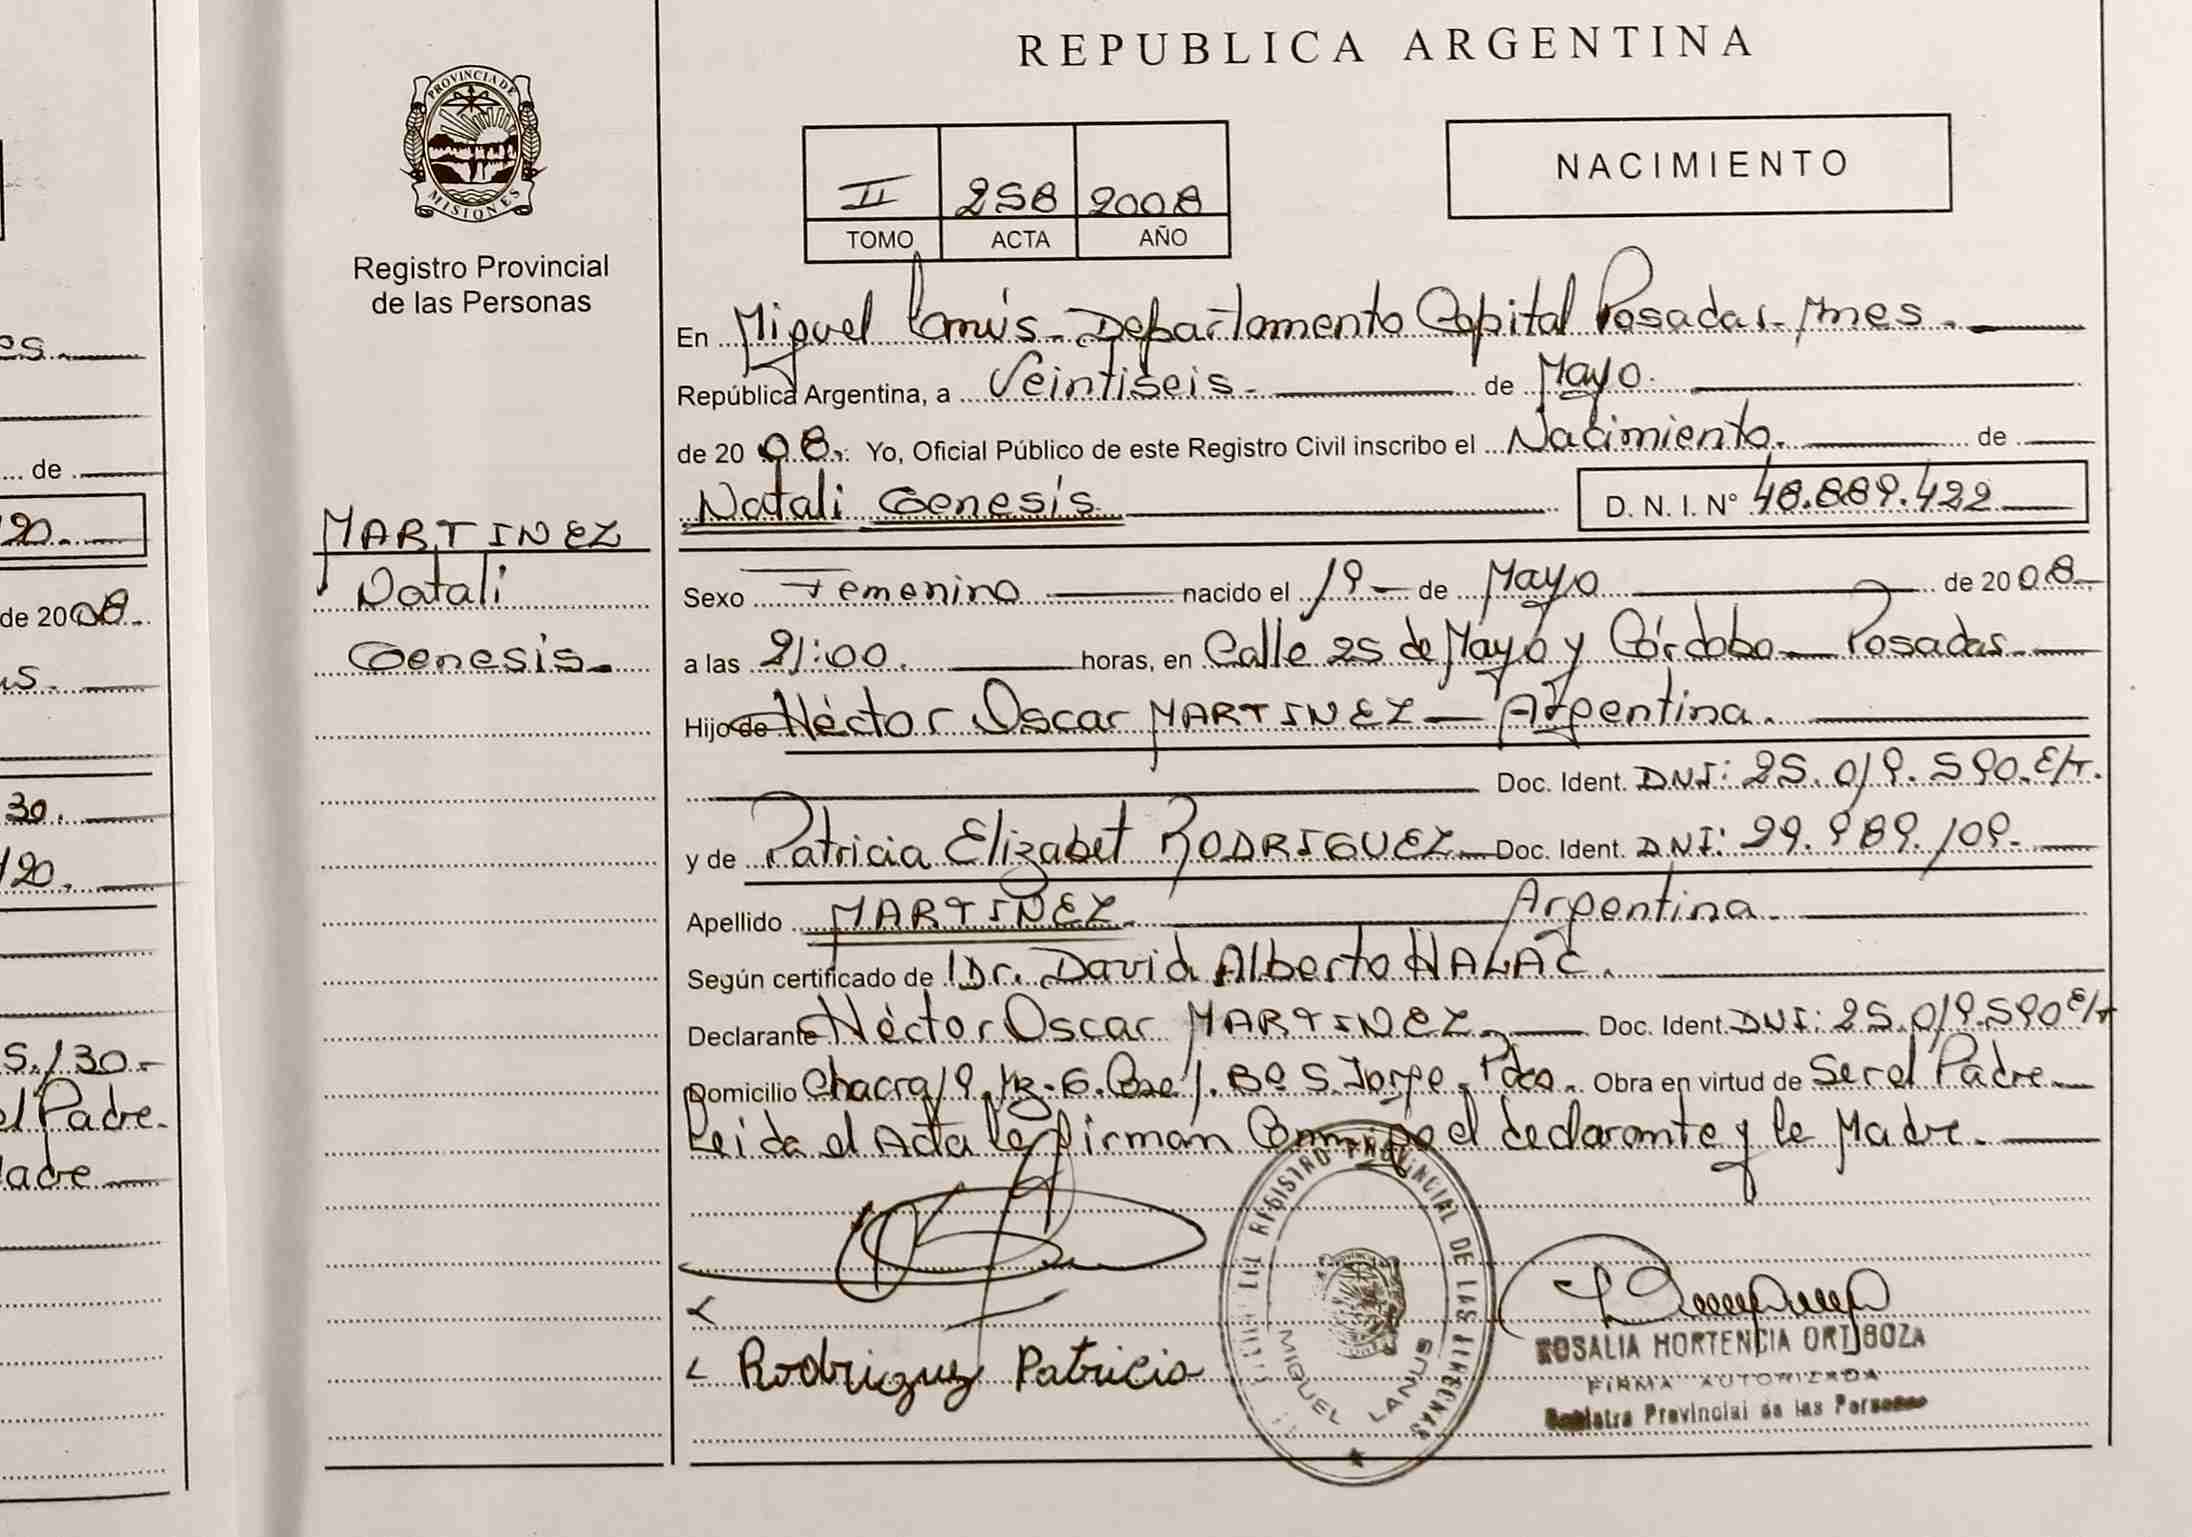 es.
de
20
de 2008.
us.
30.
120.
5.130.-
el Padre.
adre
PROVINCIA DE
MISIONES
Registro Provincial
de las Personas
MARTINEZ
Natali
Genesis.
REPUBLICA ARGENTINA
II 258 2008
TOMO ACTA AÑO
NACIMIENTO
En Miguel Lanús - Departamento Capital Posadas - Mnes.
República Argentina, a Veintiseis. de Mayo.
de 20 08. Yo, Oficial Público de este Registro Civil inscribo el Nacimiento. de
Natali Genesis D. N. I. N° 48.889.422
Sexo Femenino nacido el 19 de Mayo de 2008.
a las 21:00. horas, en Calle 25 de Mayo y Córdoba - Posadas.
Hijo de Héctor Oscar MARTINEZ - Argentina.
Doc. Ident. DNI: 25.019.590.E/T.
y de Patricia Elizabet RODRIGUEZ Doc. Ident. DNI: 29.989.109.
Apellido MARTINEZ. Argentina
Según certificado de Dr. David Alberto HALAC.
Declarante Héctor Oscar MARTINEZ. Doc. Ident. DNI: 25.019.590 E/T
Domicilio Chacra 19. Mz. 6. Case 1. Bº S. Jorge - Pdas. Obra en virtud de Ser el Padre.
Leida el Acta la firman Conmigo el declarante y la Madre.
Rodriguez Patricia
REGISTRO PROVINCIAL DE LAS PERSONAS
MIGUEL LANUS
ROSALIA HORTENCIA ORTIGOZA
FIRMA AUTORIZADA
Registro Provincial de las Personas